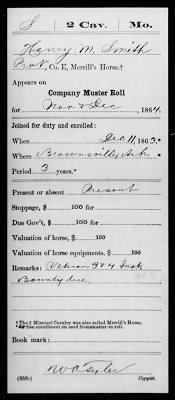 S 2 Cav. Mo.
Henry M. Smith
Pvt, Co. E, Merrill's Horse,†
Appears on
Company Muster Roll
for Nov & Dec, 1864.
Joined for duty and enrolled:
When Dec 11, 1863.*
Where Brownsville, Ark
Period 3 years.*
Present or absent Present
Stoppage, $ 100 for
Due Gov't, $ 100 for
Valuation of horse, $ 100
Valuation of horse equipments, $ 100
Remarks: Veteran 3 & 4 Inst
Bounty due
† The 2 Missouri Cavalry was also called Merrill's Horse.
* See enrollment on card from muster-in roll.
Book mark:
(358c) Copyist.